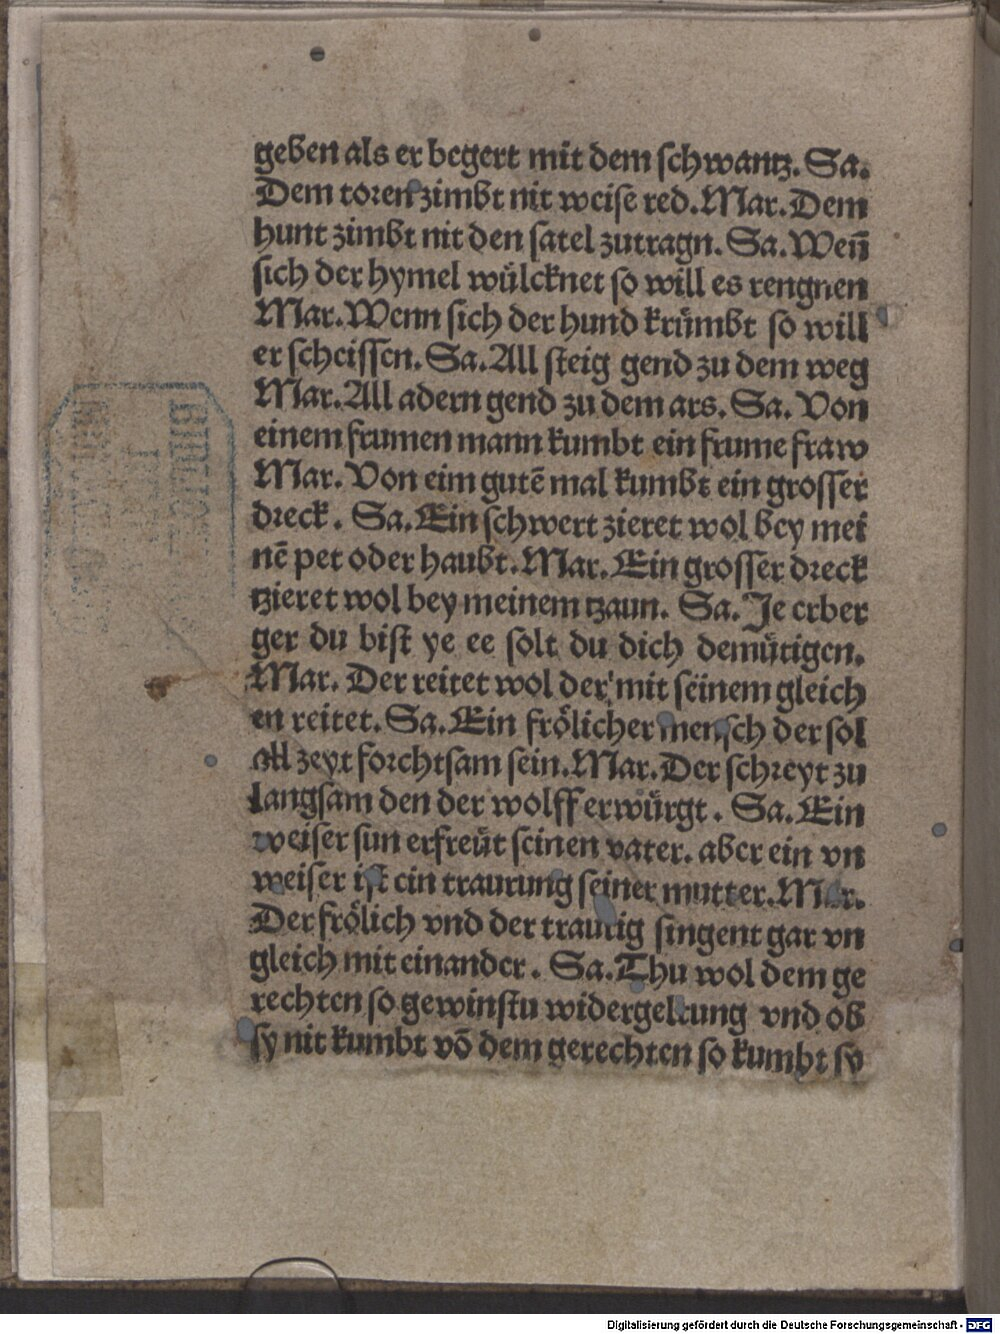 geben als er begert mit dem schwantz. Sa.
Dem toren zimbt nit weise red. Mar. Dem
hunt zimbt nit den satel zutragn. Sa. Weñ
sich der hymel wülcknet so will es rengnen
Mar. Wenn sich der hund krümbt so will
er scheissen. Sa. All steig gend zu dem weg
Mar. All adern gend zu dem ars. Sa. Von
einem frumen mann kumbt ein frume fraw
Mar. Von eim gutē mal kumbt ein grosser
dreck. Sa. Ein schwert zieret wol bey mei
nē pet oder haubt. Mar. Ein grosser dreck
tzieret wol bey meinem tzaun. Sa. Je erber
ger du bist ye ee solt du dich demütigen.
Mar. Der reitet wol der mit seinem gleich
en reitet. Sa. Ein frölicher mensch der sol
all zeyt forchtsam sein. Mar. Der schreyt zu
langsam den der wolff erwürgt. Sa. Ein
weiser sun erfreüt seinen vater. aber ein vn
weiser ist ein traurung seiner mutter. Mar.
Der frölich vnd der traurig singent gar vn
gleich mit einander. Sa. Thu wol dem ge
rechten so gewinstu widergeltung vnd ob
sy nit kumbt vō dem gerechten so kumbt sy
Digitalisierung gefördert durch die Deutsche Forschungsgemeinschaft - DFG